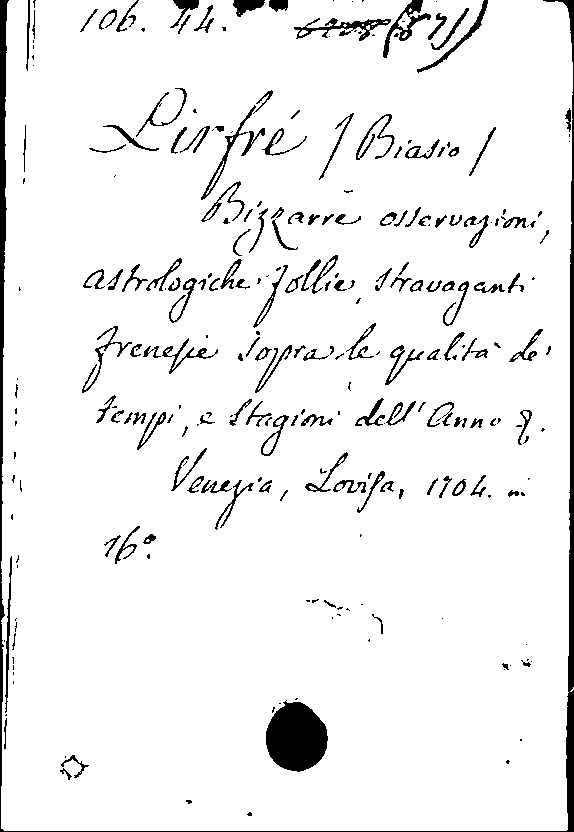 106. 44. (87)
Lirfré / Biasio /
Bizzarre osservazioni,
astrologiche follie, stravaganti
frenesie sopra le qualità de'
tempi, e stagioni dell' Anno &.
Venezia, Lovisa, 1704. in
16°.